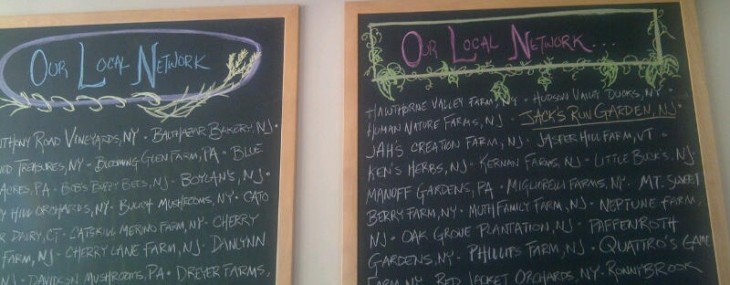 OUR LOCAL NETWORK
ANTHONY ROAD VINEYARDS, NY • BALTHAZAR BAKERY, NJ •
TREASURES, NY • BLOOMING GLEN FARM, PA • BLUE
ACRES, PA • BOBS EVERY BOTS, NJ • BOYLAN'S, NJ •
HILL ORCHARDS, NY • BULICH MUSHROOMS, NY • CATO
DAIRY, CT • CATSKILL MERINO FARM, NY • CHERRY
FARM, NJ • CHERRY LANE FARM, NJ • DANLYNN
NJ • DAVIDSON MUSHROOMS, PA • DREYER FARMS,
OUR LOCAL NETWORK...
HAWTHORNE VALLEY FARM, NY • HUDSON VALLEY DUCKS, NY •
HUMAN NATURE FARMS, NJ • JACK'S RUN GARDEN, NJ •
JAH'S CREATION FARM, NJ • JASPER HILL FARM, VT •
KEN'S HERBS, NJ • KERNAN FARMS, NJ • LITTLE BUCKS, NJ
MANOFF GARDENS, PA • MIGLIORELLI FARMS, NY • MT. SWEET
BERRY FARM, NY • MUTH FAMILY FARM, NJ • NEPTUNE FARM,
NJ • OAK GROVE PLANTATION, NJ • PAFFENROTH
GARDENS, NY • PHILLIPS FARM, NJ • QUATTRO'S GAME
FARM, NY • RED JACKET ORCHARDS, NY • RONNYBROOK